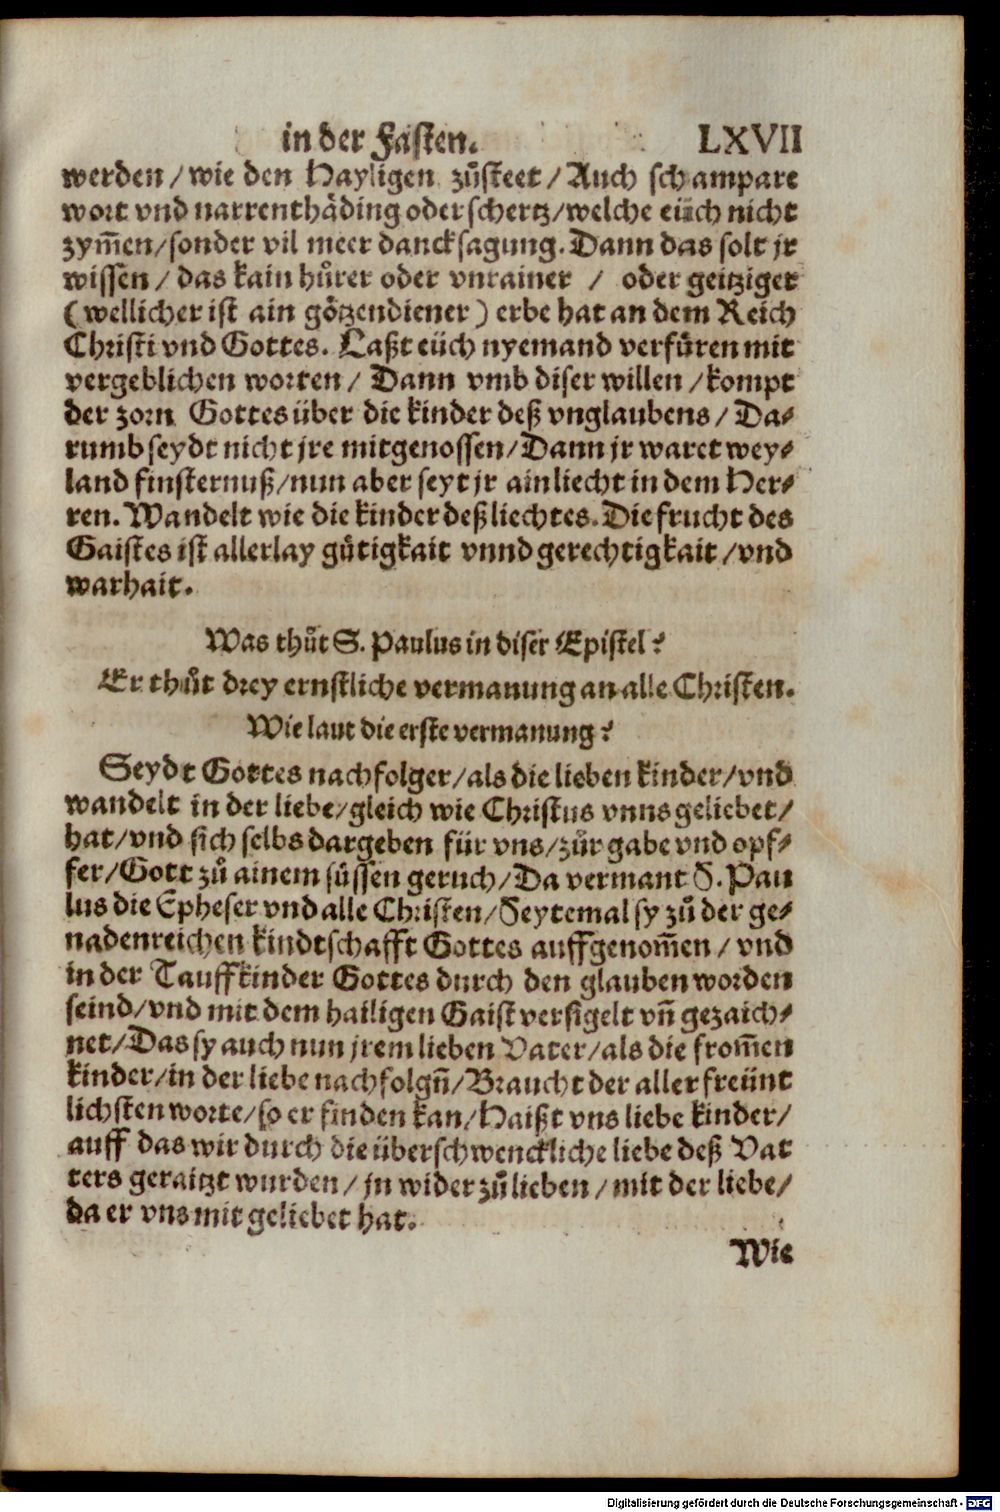 in der Fasten. LXVII
werden / wie den Hayligen zůsteet / Auch schampare
wort vnd narrenthäding oder schertz / welche eüch nicht
zym̃en / sonder vil meer dancksagung. Dann das solt jr
wissen / das kain hůrer oder vnrainer / oder geitziger
(wellicher ist ain götzendiener) erbe hat an dem Reich
Christi vnd Gottes. Laßt eüch nyemand verfüren mit
vergeblichen worten / Dann vmb diser willen / kompt
der zorn Gottes über die kinder deß vnglaubens / Da⸗
rumb seydt nicht jre mitgenossen / Dann jr waret wey⸗
land finsternuß / nun aber seyt jr ain liecht in dem Her⸗
ren. Wandelt wie die kinder deß liechtes. Die frucht des
Gaistes ist allerlay gütigkait vnnd gerechtigkait / vnd
warhait.
Was thůt S. Paulus in diser Epistel?
Er thůt drey ernstliche vermanung an alle Christen.
Wie laut die erste vermanung?
Seydt Gottes nachfolger / als die lieben kinder / vnd
wandelt in der liebe / gleich wie Christus vnns geliebet /
hat / vnd sich selbs dargeben für vns / zůr gabe vnd opf⸗
fer / Gott zů ainem süssen geruch / Da vermant S. Pau
lus die Epheser vnd alle Christen / Seytemal sy zů der ge⸗
nadenreichen kindtschafft Gottes auffgenom̃en / vnd
in der Tauff kinder Gottes durch den glauben worden
seind / vnd mit dem hailigen Gaist versigelt vñ gezaich⸗
net / Das sy auch nun jrem lieben Vater / als die from̃en
kinder / in der liebe nachfolgñ / Braucht der aller freünt
lichsten worte / so er finden kan / Haißt vns liebe kinder /
auff das wir durch die überschwenckliche liebe deß Vat
ters geraitzt wurden / jn wider zů lieben / mit der liebe /
da er vns mit geliebet hat.
Wie
Digitalisierung gefördert durch die Deutsche Forschungsgemeinschaft - DFG